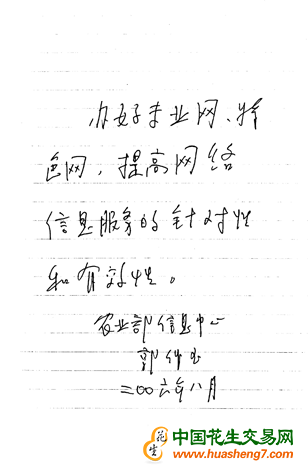 办好专业网、特
色网，提高网络
信息服务的针对性
和有效性。
农业部信息中心
郭作玉
二〇〇六年八月
花生
中国花生交易网
www.huasheng7.com